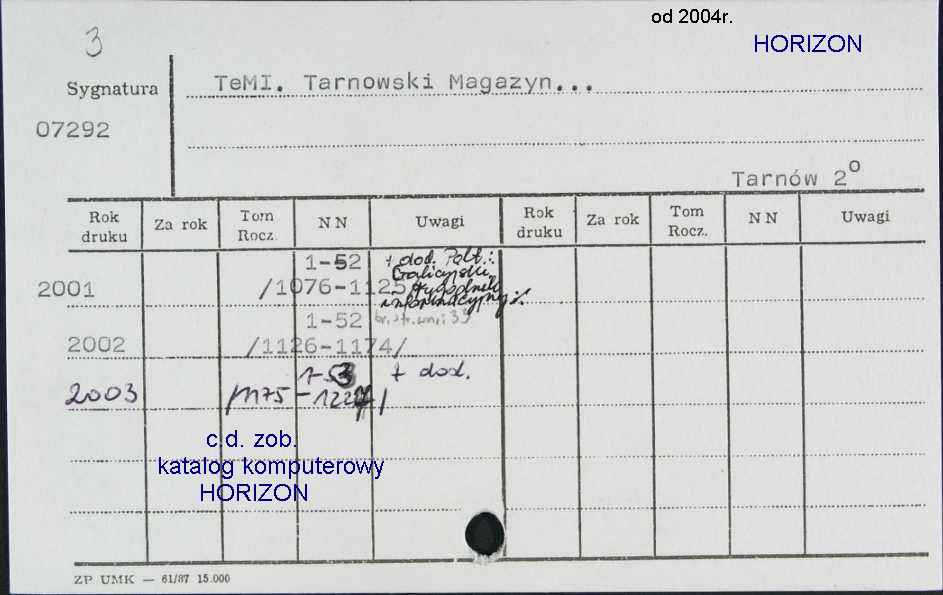 od 2004r.
3
HORIZON
Sygnatura
TeMI. Tarnowski Magazyn...
07292
Tarnów 2º
Rok druku Za rok Tom Rocz. NN Uwagi Rok druku Za rok Tom Rocz. NN Uwagi
1-52 + dod. :
Galicyjski
2001 /1076-1125 tygodnik
informacyjny :/.
1-52
2002 /1126-1174/
1-53 + dod.
2003 /1175-1227/
c.d. zob.
katalog komputerowy
HORIZON
ZP UMK — 61/87 15.000